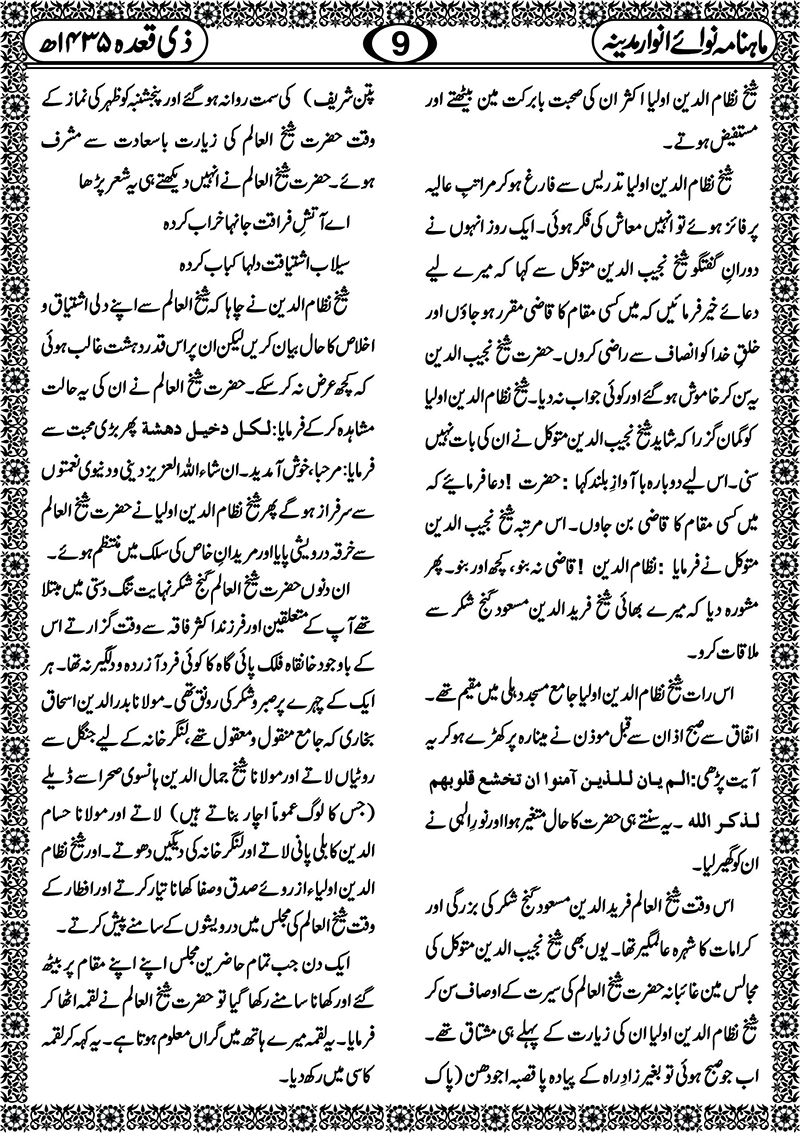 ماہنامہ نوائے انوار مدینہ
9
ذی قعدہ ۱۴۳۵ھ
شیخ نظام الدین اولیا اکثر ان کی صحبت بابرکت مین بیٹھتے اور
مستفیض ہوتے۔
شیخ نظام الدین اولیا تدریس سے فارغ ہوکر مراتبِ عالیہ
پر فائز ہوئے تو انہیں معاش کی فکر ہوئی۔ ایک روز انہوں نے
دورانِ گفتگو شیخ نجیب الدین متوکل سے کہا کہ میرے لیے
دعائے خیر فرمائیں کہ میں کسی مقام کا قاضی مقرر ہوجاؤں اور
خلقِ خدا کو انصاف سے راضی کروں۔ حضرت شیخ نجیب الدین
یہ سن کر خاموش ہوگئے اور کوئی جواب نہ دیا۔ شیخ نظام الدین اولیا
کو گمان گزرا کہ شاید شیخ نجیب الدین متوکل نے ان کی بات نہیں
سنی۔ اس لیے دوبارہ باآوازِ بلند کہا : حضرت ! دعا فرمائیے کہ
میں کسی مقام کا قاضی بن جاوں۔ اس مرتبہ شیخ نجیب الدین
متوکل نے فرمایا : نظام الدین ! قاضی نہ بنو، کچھ اور بنو۔ پھر
مشورہ دیا کہ میرے بھائی شیخ فرید الدین مسعود گنج شکر سے
ملاقات کرو۔
اس رات شیخ نظام الدین اولیا جامع مسجد دہلی میں مقیم تھے۔
اتفاق سے صبح اذان سے قبل موذن نے مینارہ پر کھڑے ہوکر یہ
آیت پڑھی: الم یان للذین آمنوا ان تخشع قلوبھم
لذکر اللہ ۔ یہ سنتے ہی حضرت کا حال متغیر ہوا اور نورِ الٰہی نے
ان کو گھیر لیا۔
اس وقت شیخ العالم فرید الدین مسعود گنج شکر کی بزرگی اور
کرامات کا شہرہ عالمگیر تھا۔ یوں بھی شیخ نجیب الدین متوکل کی
مجالس مین غائبانہ حضرت شیخ العالم کی سیرت کے اوصاف سن کر
شیخ نظام الدین اولیا ان کی زیارت کے پہلے ہی مشتاق تھے۔
اب جو صبح ہوئی تو بغیر زادِ راہ کے پیادہ پا قصبہ اجودھن (پاک
پتن شریف) کی سمت روانہ ہوگئے اور پنجشنبہ کو ظہر کی نماز کے
وقت حضرت شیخ العالم کی زیارت باسعادت سے مشرف
ہوئے۔ حضرت شیخ العالم نے انہیں دیکھتے ہی یہ شعر پڑھا
اے آتشِ فراقت جانہا خراب کردہ
سیلاب اشتیاقت دلہا کباب کردہ
شیخ نظام الدین نے چاہا کہ شیخ العالم سے اپنے دلی اشتیاق و
اخلاص کا حال بیان کریں لیکن ان پر اس قدر دہشت غالب ہوئی
کہ کچھ عرض نہ کرسکے۔ حضرت شیخ العالم نے ان کی یہ حالت
مشاہدہ کرکے فرمایا: لکل دخیل دھشة پھر بڑی محبت سے
فرمایا: مرحبا، خوش آمدید۔ ان شاء اللہ العزیز دینی و دنیوی نعمتوں
سے سرفراز ہوگے پھر شیخ نظام الدین اولیا نے حضرت شیخ العالم
سے خرقہ درویشی پایا اور مریدانِ خاص کی سلک میں منتظم ہوئے۔
ان دنوں حضرت شیخ العالم گنج شکر نہایت تنگ دستی میں مبتلا
تھے آپ کے متعلقین اور فرزند اکثر فاقہ سے وقت گزارتے اس
کے باوجود خانقاہ فلک پائی گاہ کا کوئی فرد آزردہ و دلگیر نہ تھا۔ ہر
ایک کے چہرے پر صبر و شکر کی رونق تھی۔ مولانا بدر الدین اسحاق
بخاری کہ جامع منقول و معقول تھے، لنگر خانہ کے لیے جنگل سے
روٹیاں لاتے اور مولانا شیخ جمال الدین ہانسوی صحرا سے ڈیلے
(جس کا لوگ عموماً اچار بناتے ہیں) لاتے اور مولانا حسام
الدین کابلی پانی لاتے اور لنگر خانہ کی دیگیں دھوتے۔ اور شیخ نظام
الدین اولیاء از روئے صدق و صفا کھانا تیار کرتے اور افطار کے
وقت شیخ العالم کی مجلس میں درویشوں کے سامنے پیش کرتے۔
ایک دن جب تمام حاضرین مجلس اپنے اپنے مقام پر بیٹھ
گئے اور کھانا سامنے رکھا گیا تو حضرت شیخ العالم نے لقمہ اٹھا کر
فرمایا۔ یہ لقمہ میرے ہاتھ میں گراں معلوم ہوتا ہے۔ یہ کہہ کر لقمہ
کاسی میں رکھ دیا۔